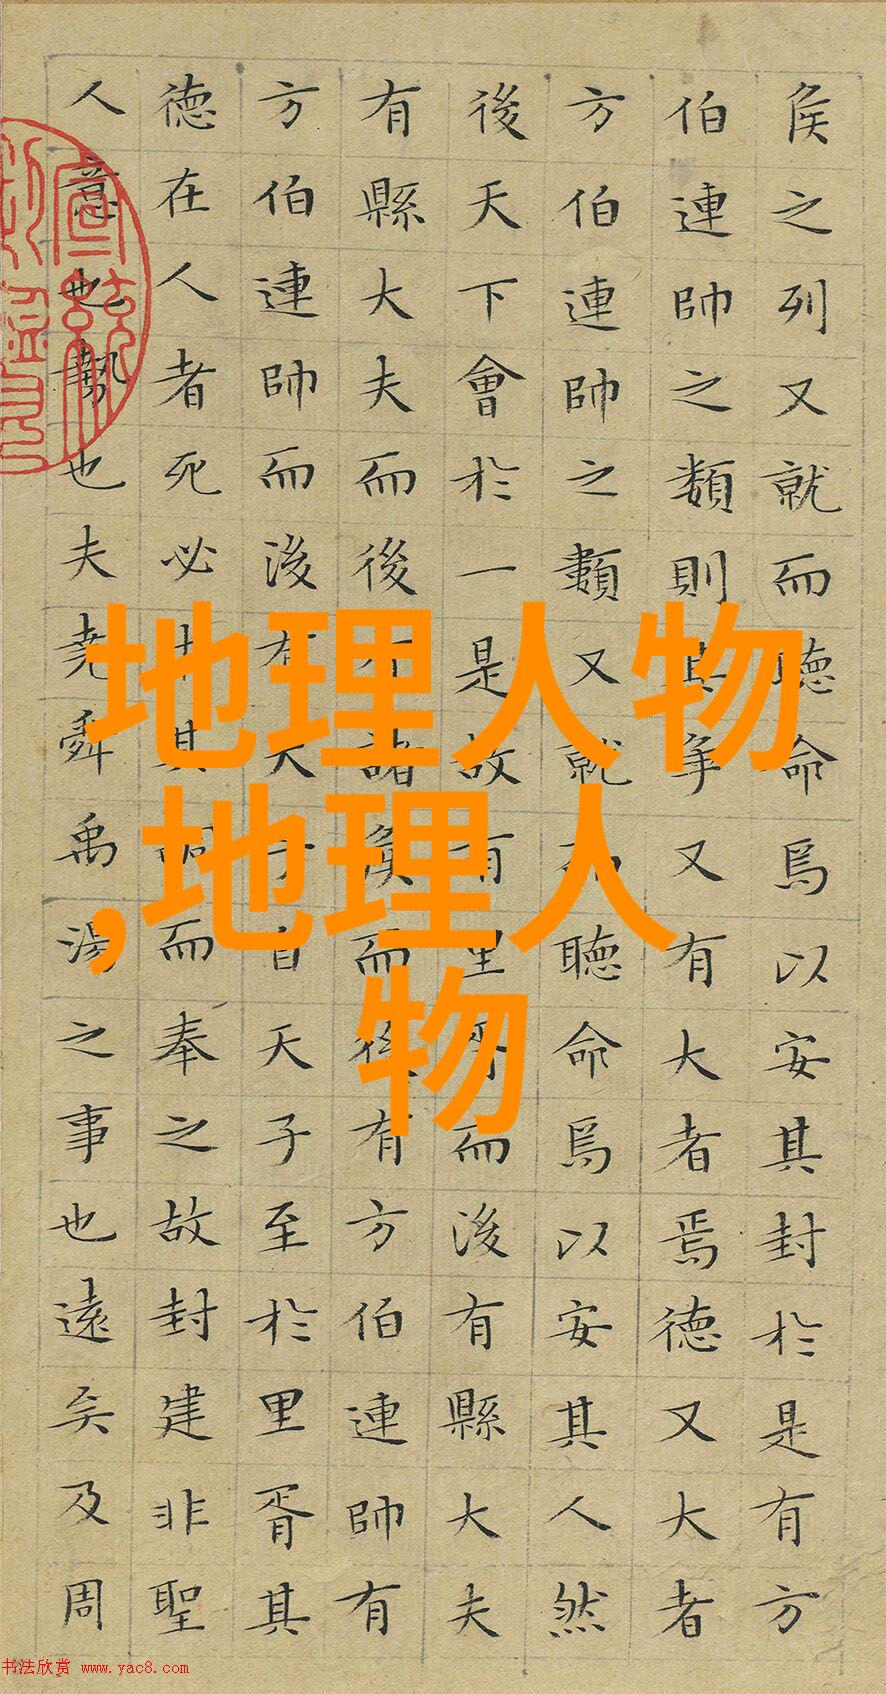 侯之列又就而聴命焉以安其封於是有方
伯連帥之類則其爭又有大者焉徳又大者
方伯連帥之類又就而聴命焉以安其人然
後天下會於一是故有里胥而後有縣大夫
有縣大夫而後有諸侯而後有方伯連帥有
方伯連帥而後有天子自天子至於里胥其
徳在人者死必求其嗣而奉之故封建非聖
人意也勢也夫堯舜禹湯之事也遠矣及周
地理人物
,地理人
物
书法欣赏 www.yac8.com